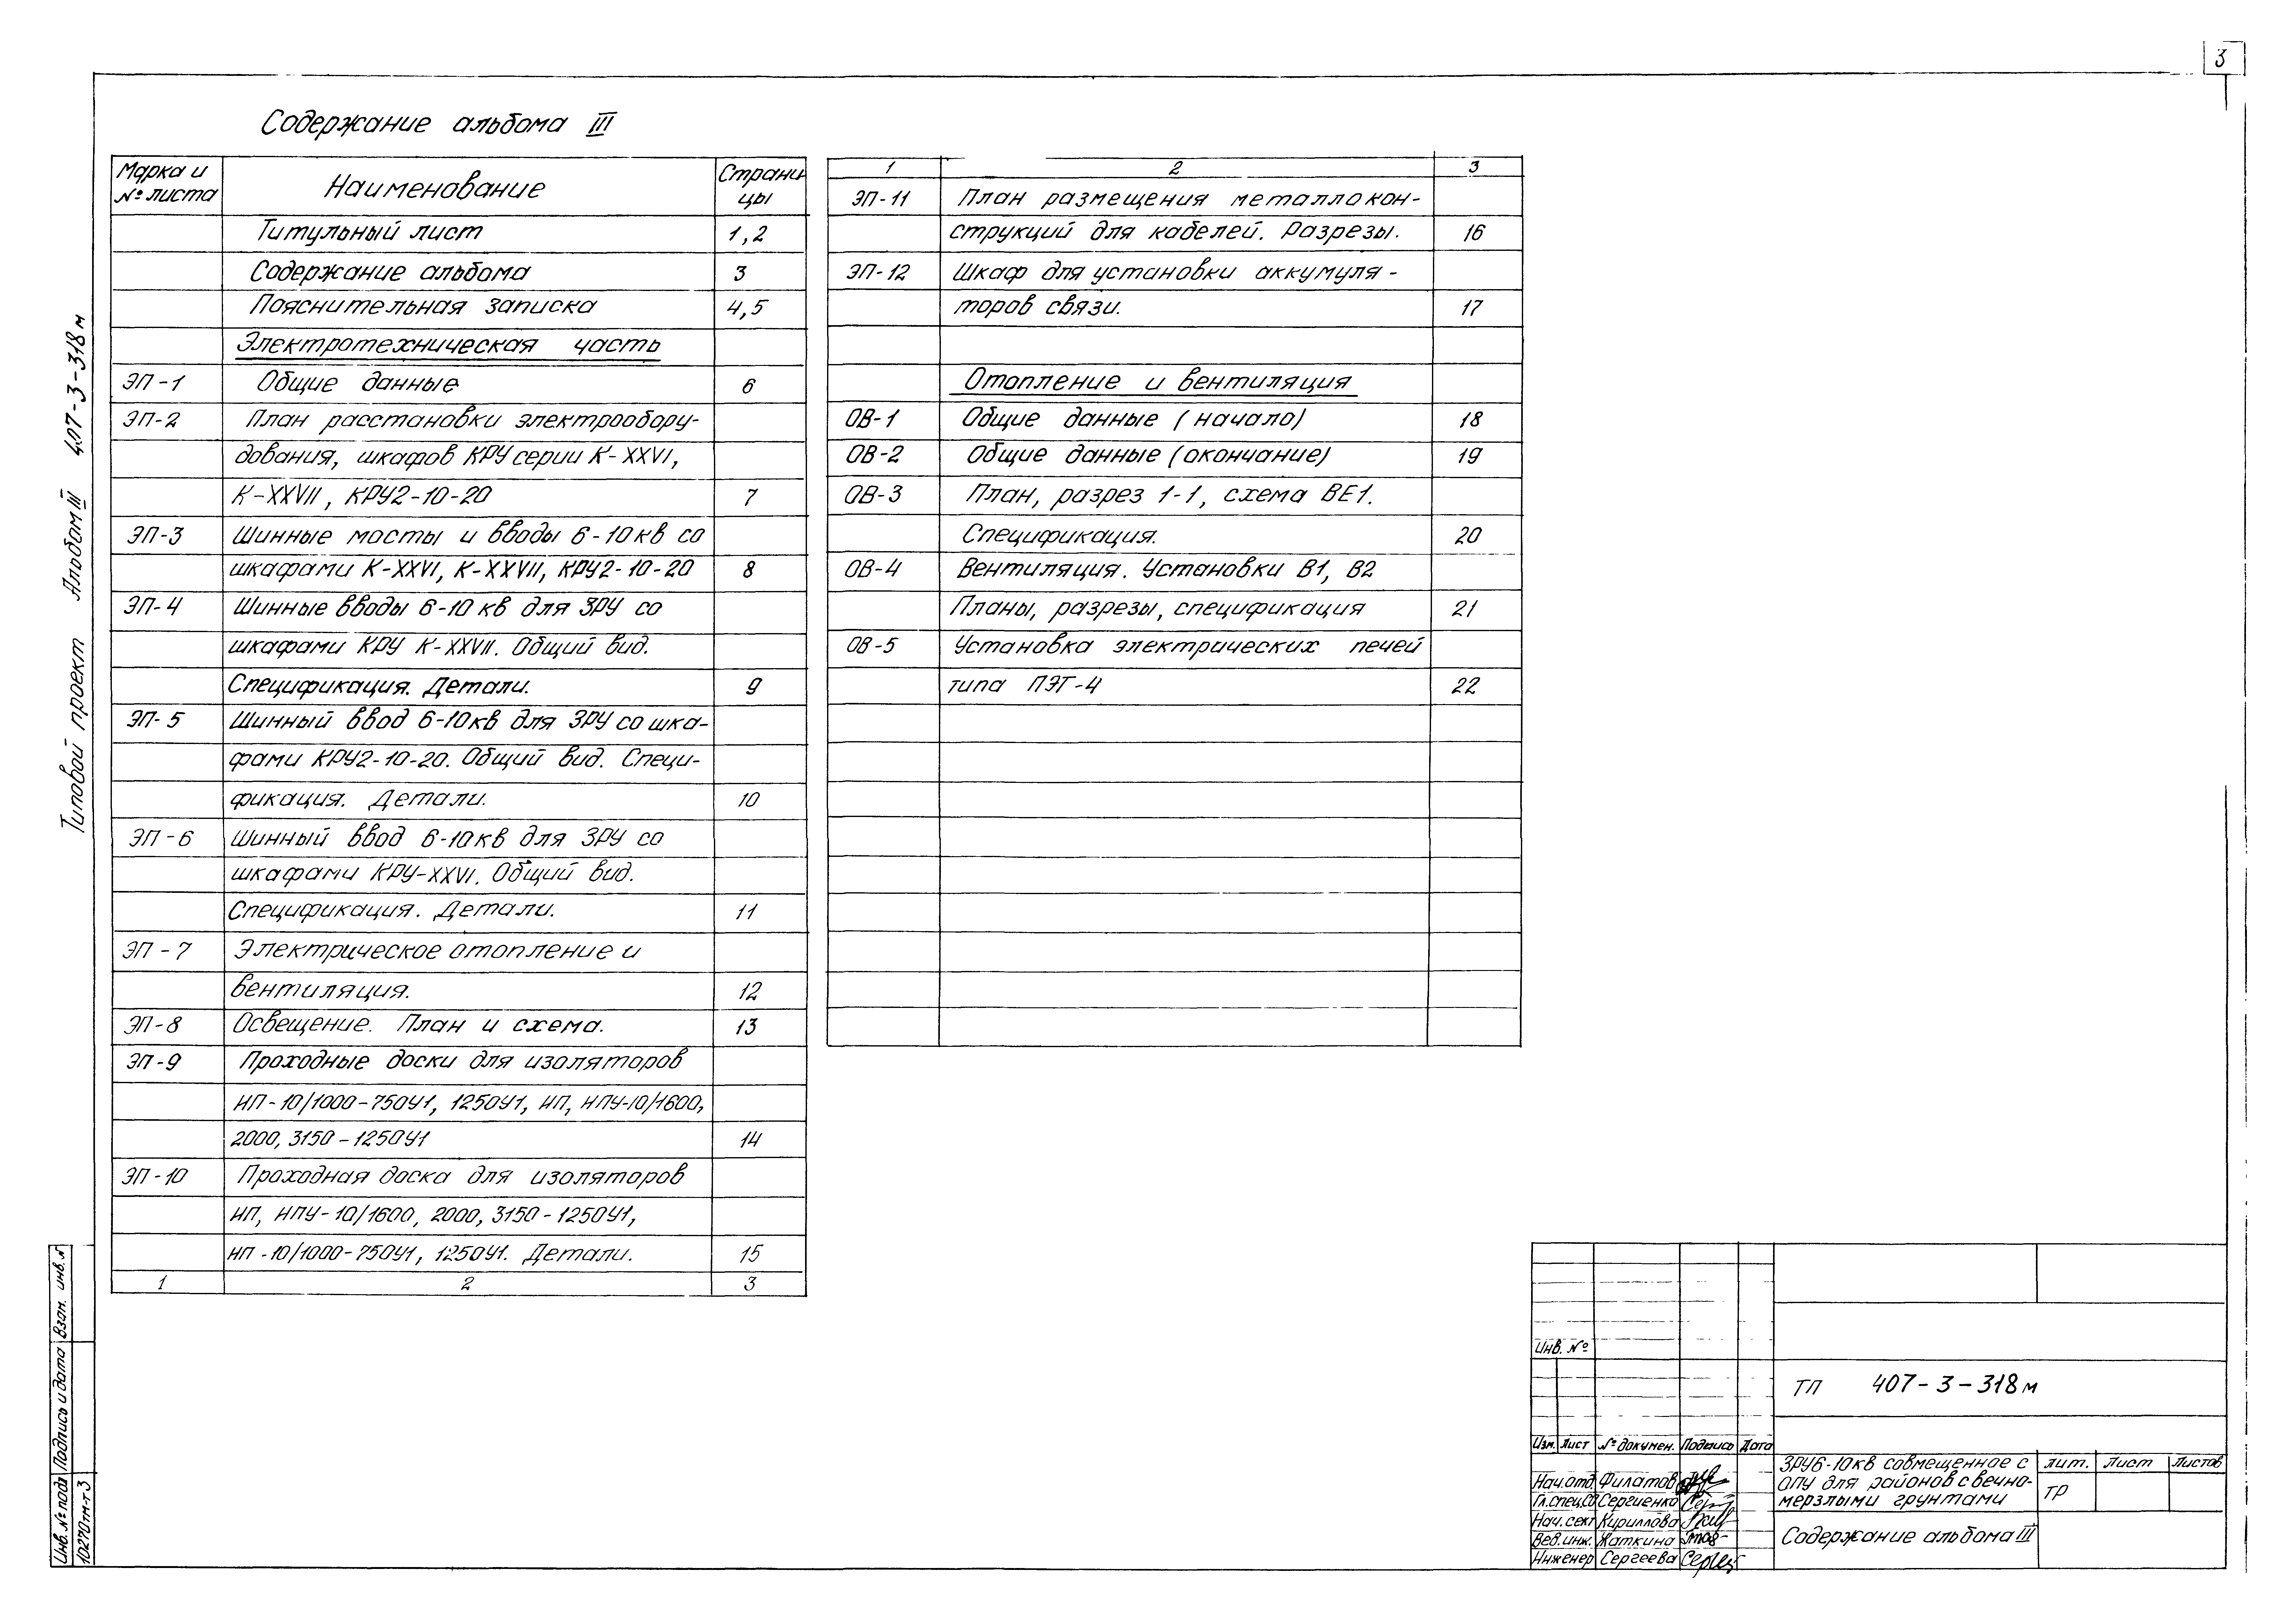 3
Содержание альбома III
Марка и № листа | Наименование | Страницы
Титульный лист 1,2
Содержание альбома 3
Пояснительная записка 4,5
Электротехническая часть
ЭП-1 Общие данные 6
ЭП-2 План расстановки электрообору-
дования, шкафов КРУ серии К-XXVI,
К-XXVII, КРУ2-10-20 7
ЭП-3 Шинные мосты и вводы 6-10кв со
шкафами К-XXVI, К-XXVII, КРУ2-10-20 8
ЭП-4 Шинные вводы 6-10 кв для ЗРУ со
шкафами КРУ К-XXVII. Общий вид.
Спецификация. Детали. 9
ЭП-5 Шинный ввод 6-10кв для ЗРУ со шка-
фами КРУ2-10-20. Общий вид. Специ-
фикация. Детали. 10
ЭП-6 Шинный ввод 6-10кв для ЗРУ со
шкафами КРУ-XXVI. Общий вид.
Спецификация. Детали. 11
ЭП-7 Электрическое отопление и
вентиляция. 12
ЭП-8 Освещение. План и схема. 13
ЭП-9 Проходные доски для изоляторов
ИП-10/1000-750У1, 1250У1, ИП, ИПУ-10/1600,
2000, 3150-1250У1 14
ЭП-10 Проходная доска для изоляторов
ИП, ИПУ-10/1600, 2000, 3150-1250У1,
ИП-10/1000-750У1, 1250У1. Детали. 15
1 2 3
1 2 3
ЭП-11 План размещения металлокон-
струкций для кабелей. Разрезы. 16
ЭП-12 Шкаф для установки аккумуля-
торов связи. 17
Отопление и вентиляция
ОВ-1 Общие данные (начало) 18
ОВ-2 Общие данные (окончание) 19
ОВ-3 План, разрез 1-1, схема ВЕ1.
Спецификация. 20
ОВ-4 Вентиляция. Установки В1, В2
Планы, разрезы, спецификация 21
ОВ-5 Установка электрических печей
типа ПЭТ-4 22
Типовой проект Альбом III 407-3-318м
Инв. № подл Подпись и дата Взам. инв. №
10270тм-т3
Инв. №
Изм. Лист № докумен. Подпись Дата
Нач.отд. Филатов
Гл.спец.СО Сергиенко
Нач. сект Кириллова
Вед.инж. Жаткина
Инженер Сергеева
ТП 407-3-318м
ЗРУ6-10кв совмещенное с
ОПУ для районов с вечно-
мерзлыми грунтами
Лит. Лист Листов
ТР
Содержание альбома III